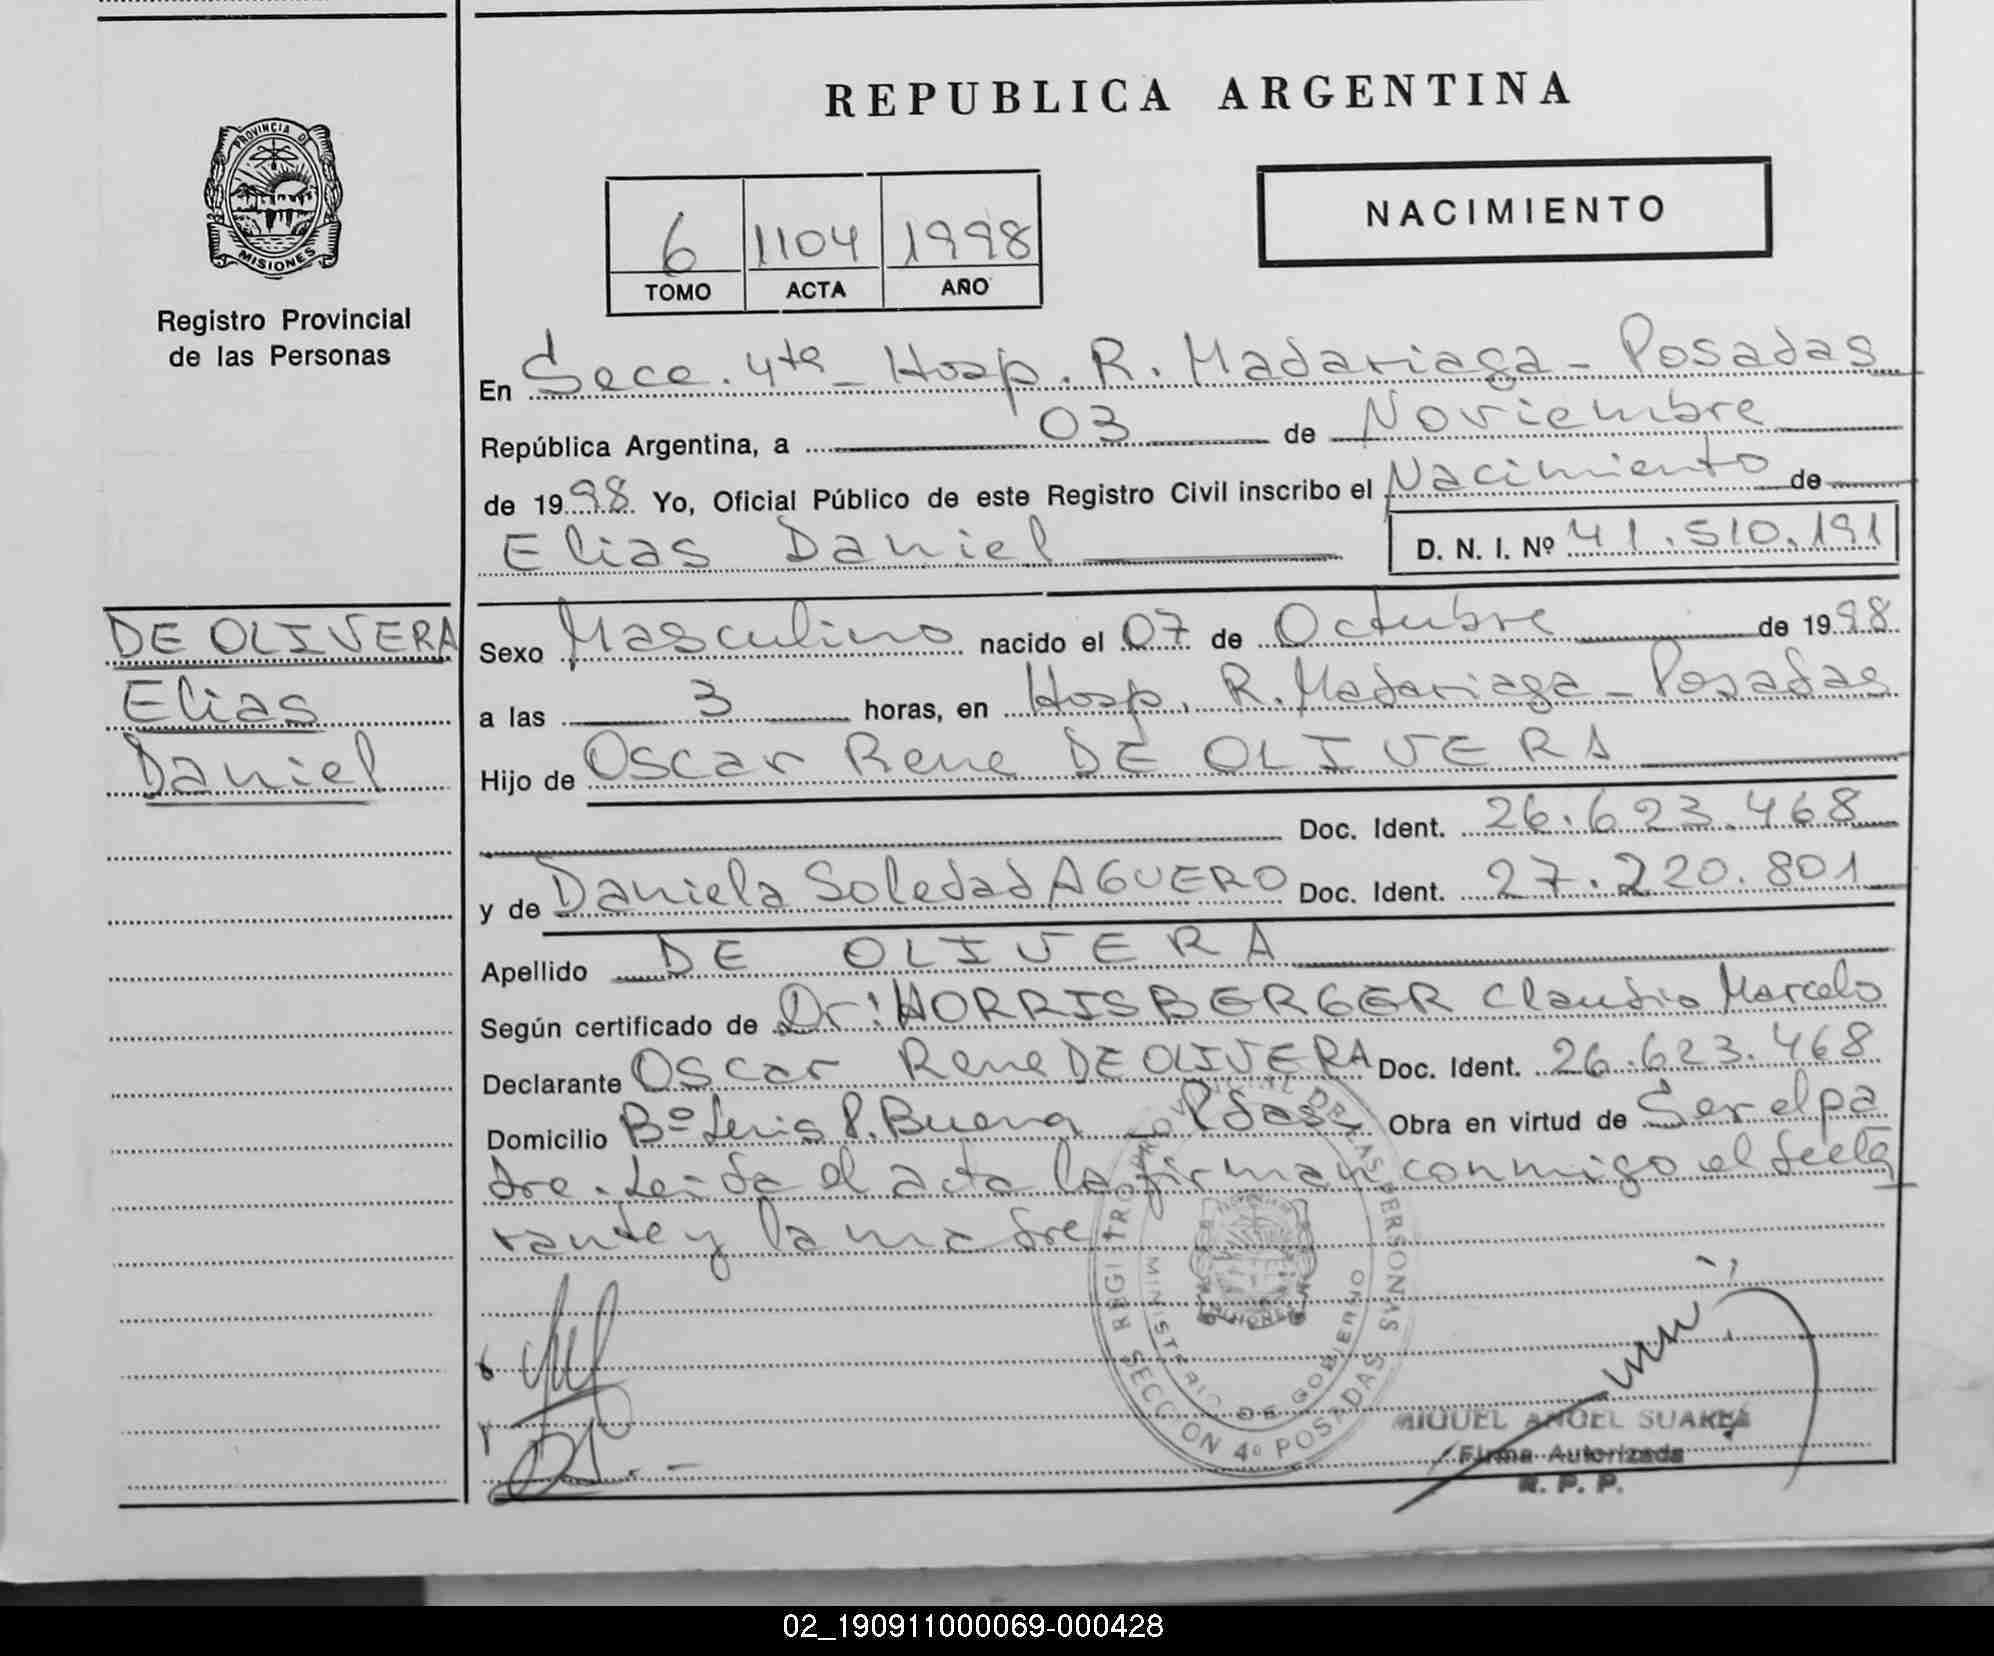 REPUBLICA ARGENTINA
PROVINCIA DE
MISIONES
Registro Provincial
de las Personas
6 1104 1998
TOMO ACTA AÑO
NACIMIENTO
En Secc. 4ta - Hosp. R. Madariaga - Posadas
República Argentina, a 03 de Noviembre
de 1998 Yo, Oficial Público de este Registro Civil inscribo el Nacimiento de
Elias Daniel D. N. I. Nº 41.510.191
DE OLIVERA
Elias
Daniel
Sexo Masculino nacido el 07 de Octubre de 1998
a las 3 horas, en Hosp. R. Madariaga - Posadas
Hijo de Oscar Rene DE OLIVERA
Doc. Ident. 26.623.468
y de Daniela Soledad AGUERO Doc. Ident. 27.220.801
Apellido DE OLIVERA
Según certificado de Dr: HORRISBERGER Claudio Marcelo
Declarante Oscar Rene DE OLIVERA Doc. Ident. 26.623.468
Domicilio Bº Luis P. Buena - Pdas. Obra en virtud de Ser el pa
dre. Leida el acta la firman conmigo el decla
rante y la madre
REGISTRO PROVINCIAL DE LAS PERSONAS
MINISTERIO DE GOBIERNO
MISIONES
SECCION 4º POSADAS
MIGUEL ANGEL SUAREZ
Firma Autorizada
R. P. P.
02_190911000069-000428